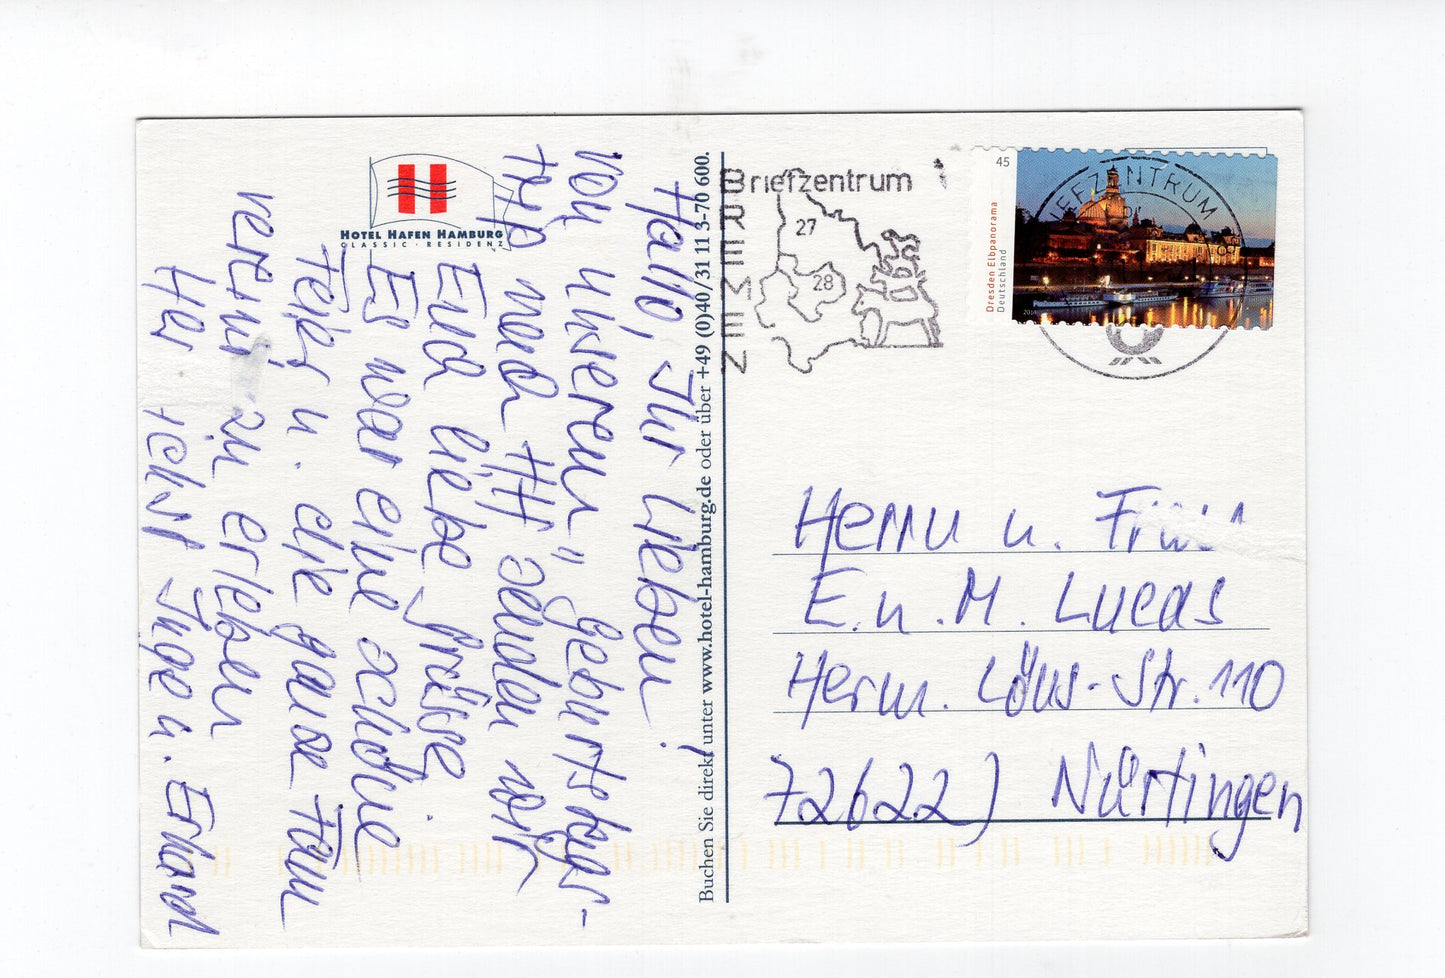 HOTEL HAFEN HAMBURG
CLASSIC · RESIDENZ
Hallo, Ihr Lieben!
von unserem „Geburtstags-
trip nach HH senden wir
Euch liebe Grüsse
Es war eine schöne
Feier u. die ganze Fam
zu erleben
Inge u. Erhard
Buchen Sie direkt unter www.hotel-hamburg.de oder über +49 (0)40/31 11 3-70 600.
Briefzentrum
BREMEN
27
28
45
Dresden Elbpanorama
Deutschland
BRIEFZENTRUM
Herrn u. Frau
E. u. M. Lucas
Herm. Löns-Str. 110
72622) Nürtingen